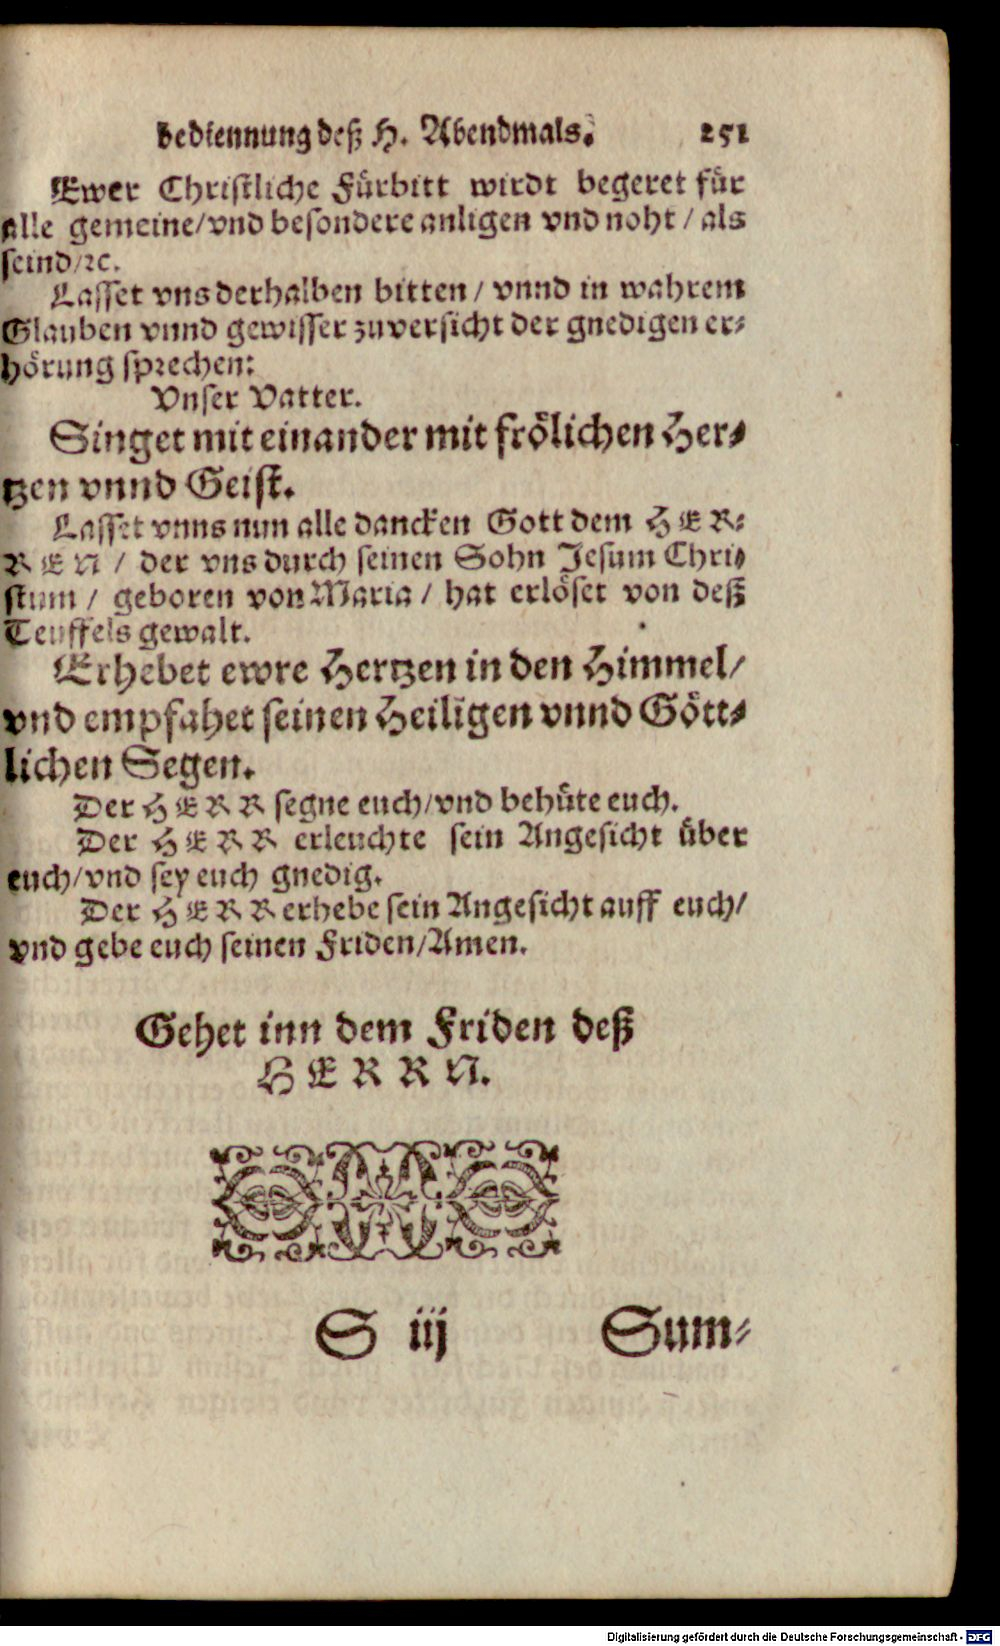 bediennung deß H. Abendmals. 251
Ewer Christliche Fürbitt wirdt begeret für
alle gemeine/vnd besondere anligen vnd noht / als
seind/ꝛc.
Lasset vns derhalben bitten / vnnd in wahrem
Glauben vnnd gewisser zuversicht der gnedigen er-
hörung sprechen:
Vnser Vatter.
Singet mit einander mit frölichen Her-
tzen vnnd Geist.
Lasset vnns nun alle dancken Gott dem HER-
REN / der vns durch seinen Sohn Jesum Chri-
stum / geboren von Maria / hat erlöset von deß
Teuffels gewalt.
Erhebet ewre Hertzen in den Himmel/
vnd empfahet seinen Heiligen vnnd Gött-
lichen Segen.
Der HERR segne euch/vnd behüte euch.
Der HERR erleuchte sein Angesicht über
euch/vnd sey euch gnedig.
Der HERR erhebe sein Angesicht auff euch/
vnd gebe euch seinen Friden/Amen.
Gehet inn dem Friden deß
HERRN.
S iij Sum-
Digitalisierung gefördert durch die Deutsche Forschungsgemeinschaft - DFG